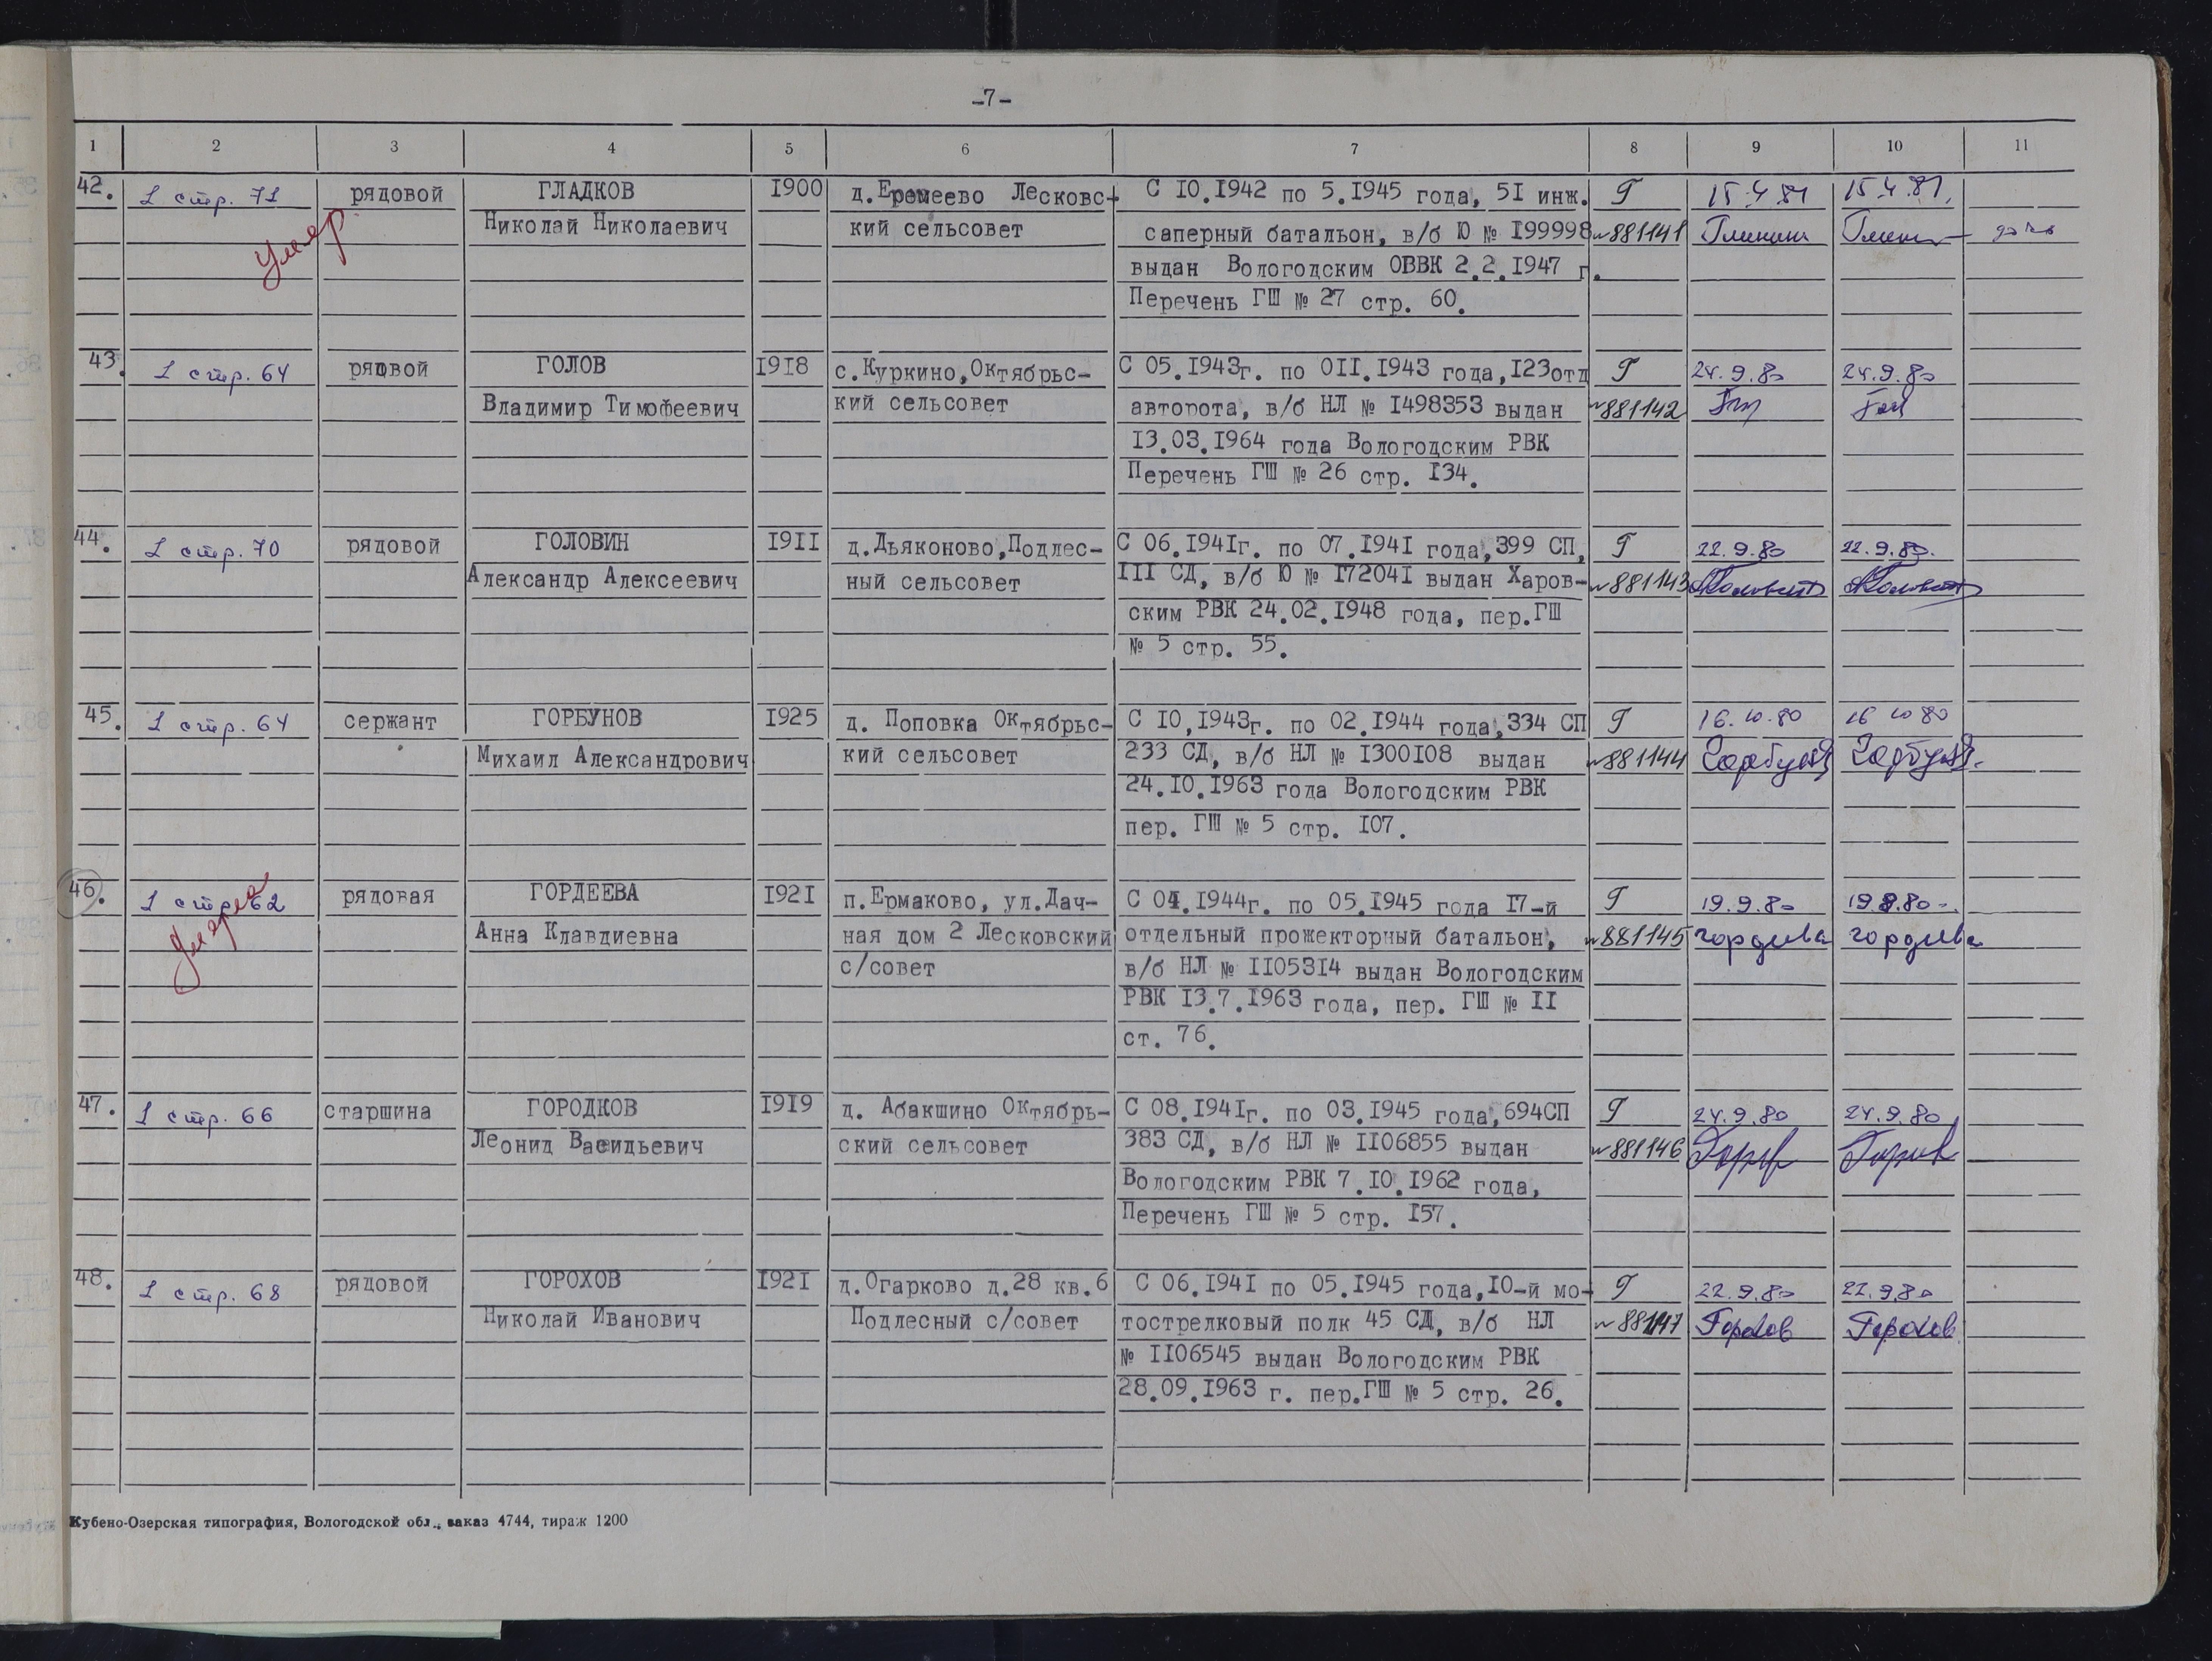 -7-
1 2 3 4 5 6 7 8 9 10 11
42. 1 стр. 71 рядовой ГЛАДКОВ 1900 д.Еремеево Лесковс- С 10.1942 по 5.1945 года, 51 инж. Г 15.4.81 15.4.81.
умер Николай Николаевич кий сельсовет саперный батальон, в/б Ю № 199998 №881141
выдан Вологодским ОВВК 2.2.1947 г.
Перечень ГШ № 27 стр. 60.
43. 1 стр. 64 рядвой ГОЛОВ 1918 с.Куркино,Октябрьс- С 05.1943г. по 011.1943 года,123отд Г 24.9.80 24.9.80
Владимир Тимофеевич кий сельсовет авторота, в/б НЛ № 1498353 выдан №881142
13.03.1964 года Вологодским РВК
Перечень ГШ № 26 стр. 134.
44. 1 стр. 70 рядовой ГОЛОВИН 1911 д.Дьяконово,Подлес- С 06.1941г. по 07.1941 года,399 СП, Г 22.9.80 22.9.80.
Александр Алексеевич ный сельсовет 111 СД, в/б Ю № 172041 выдан Харов- №881143
ским РВК 24.02.1948 года, пер.ГШ
№ 5 стр. 55.
45. 1 стр. 64 сержант ГОРБУНОВ 1925 д. Поповка Октябрьс- С 10,1943г. по 02.1944 года,334 СП Г 16.10.80 16 10 80
Михаил Александрович кий сельсовет 233 СД, в/б НЛ № 1300108 выдан №881144
24.10.1963 года Вологодским РВК
пер. ГШ № 5 стр. 107.
46. 1 стр. 62 рядовая ГОРДЕЕВА 1921 п.Ермаково, ул.Дач- С 04.1944г. по 05.1945 года 17-й Г 19.9.80 19.9.80
умерла Анна Клавдиевна ная дом 2 Лесковский отдельный прожекторный батальон, №881145 Гордеева Гордеева
с/совет в/б НЛ № 1105314 выдан Вологодским
РВК 13.7.1963 года, пер. ГШ № 11
ст. 76.
47. 1 стр. 66 старшина ГОРОДКОВ 1919 д. Абакшино Октябрь- С 08.1941г. по 03.1945 года,694СП Г 24.9.80 24.9.80
Леонид Васидьевич ский сельсовет 383 СД, в/б НЛ № 1106855 выдан №881146
Вологодским РВК 7.10.1962 года,
Перечень ГШ № 5 стр. 157.
48. 1 стр. 68 рядовой ГОРОХОВ 1921 д.Огарково д.28 кв.6 С 06.1941 по 05.1945 года,10-й мо- Г 22.9.80 22.9.80
Николай Иванович Подлесный с/совет тострелковый полк 45 СД, в/б НЛ №881147 Горохов Горохов
№ 1106545 выдан Вологодским РВК
28.09.1963 г. пер.ГШ № 5 стр. 26.
Кубено-Озерская типография, Вологодской обл., заказ 4744, тираж 1200